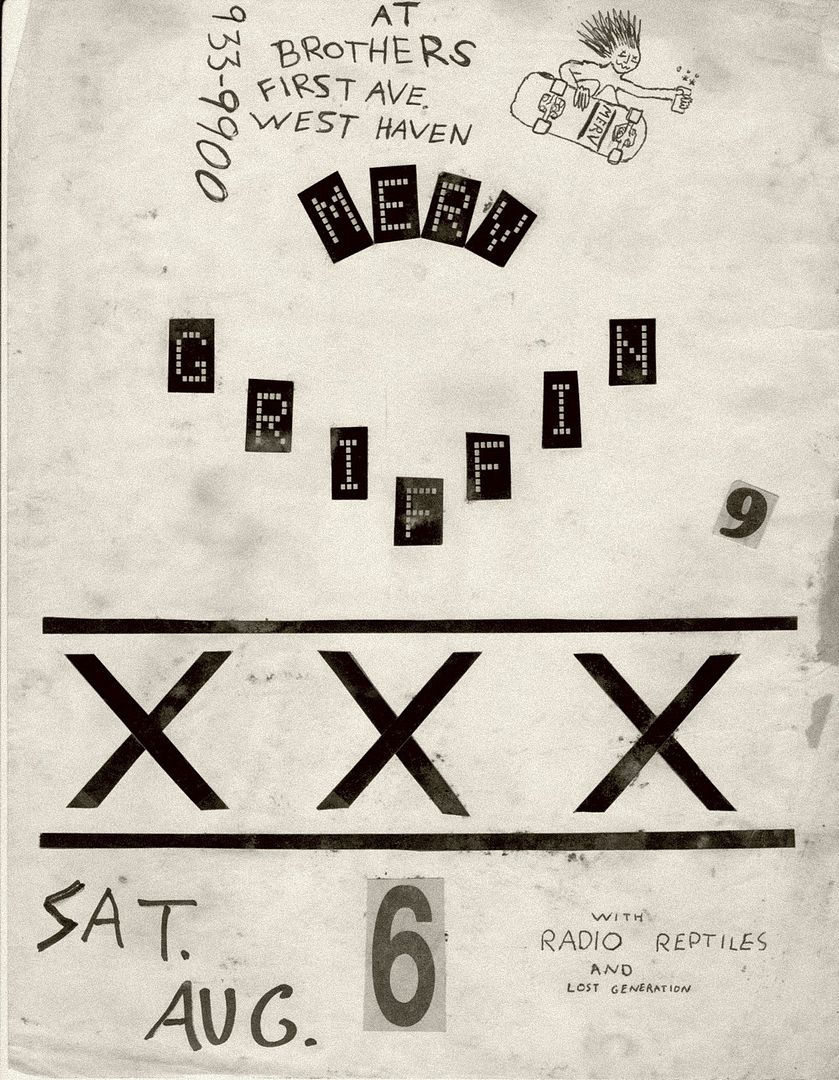 AT
BROTHERS
FIRST AVE.
WEST HAVEN
933-9900
MERV
MERV
GRIFFIN
9
XXX
SAT.
AUG.
6
WITH
RADIO REPTILES
AND
LOST GENERATION